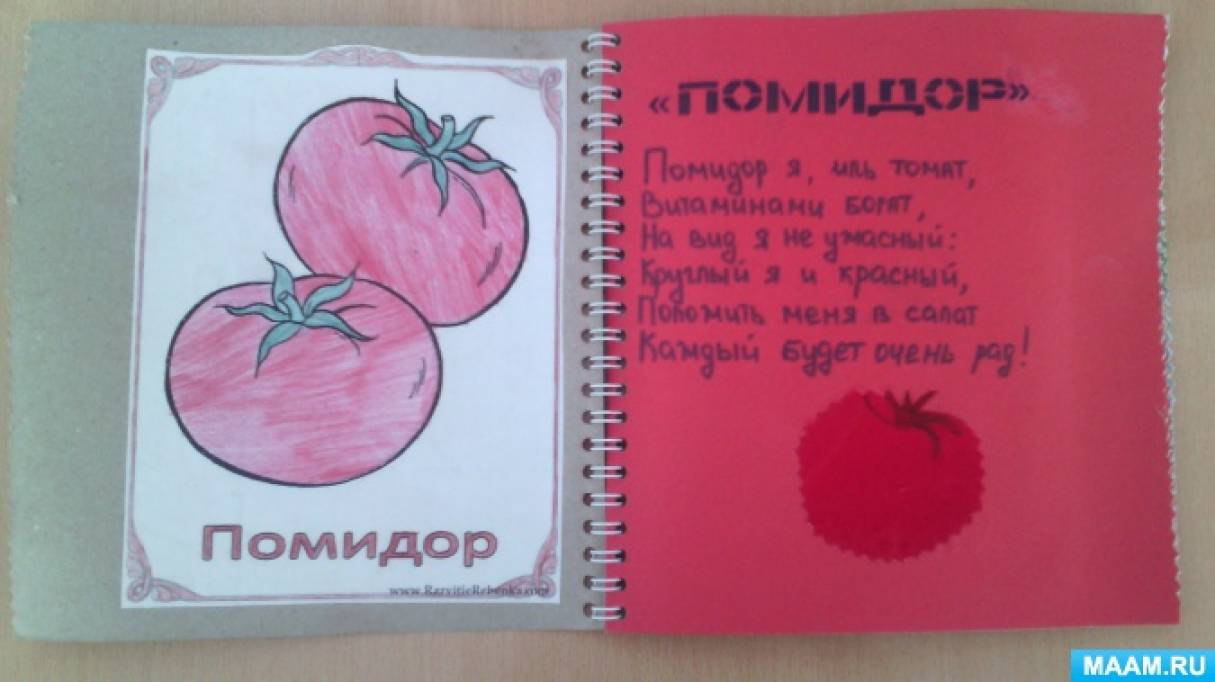 Помидор
www.RazvitieRebenka.com
«ПОМИДОР»
Помидор я, иль томат,
Витаминами богат,
На вид я не ужасный:
Круглый я и красный,
Положить меня в салат
Каждый будет очень рад!
MAAM.RU